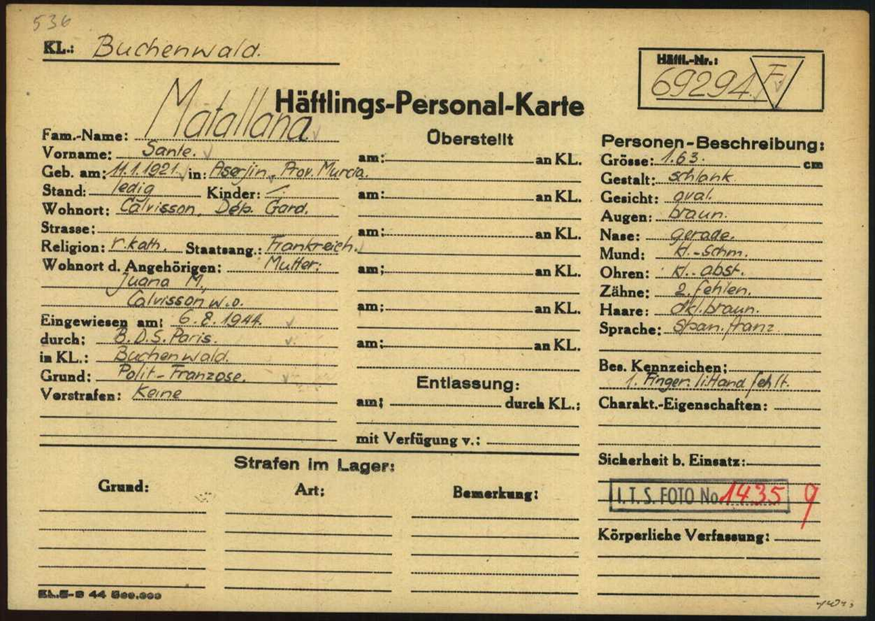 536
KL.: Buchenwald.
Häftl.-Nr.:
69294 F
Häftlings-Personal-Karte
Fam.-Name: Matallana
Vorname: Sante.
Geb. am: 11.1.1921 in: Aserjin, Prov. Murcia.
Stand: ledig Kinder: /.
Wohnort: Calvisson, Dép. Gard.
Strasse:
Religion: r.kath. Staatsang.: Frankreich.
Wohnort d. Angehörigen: Mutter:
Juana M,
Calvisson w.o.
Eingewiesen am: 6.8.1944.
durch: B.d.S. Paris.
in KL.: Buchenwald.
Grund: Polit-Franzose.
Vorstrafen: Keine
Überstellt
am: an KL.
am: an KL.
am: an KL.
am: an KL.
am: an KL.
am: an KL.
Entlassung:
am: durch KL.:
mit Verfügung v.:
Personen-Beschreibung:
Grösse: 1.63. cm
Gestalt: schlank
Gesicht: oval.
Augen: braun.
Nase: gerade.
Mund: kl.-schm.
Ohren: kl.-abst.
Zähne: 2 fehlen.
Haare: dkl.braun.
Sprache: span.franz
Bes. Kennzeichen:
1. Finger li. Hand fehlt.
Charakt.-Eigenschaften:
Sicherheit b. Einsatz:
I.T.S. FOTO No 1435 9
Körperliche Verfassung:
Strafen im Lager:
Grund: Art: Bemerkung: